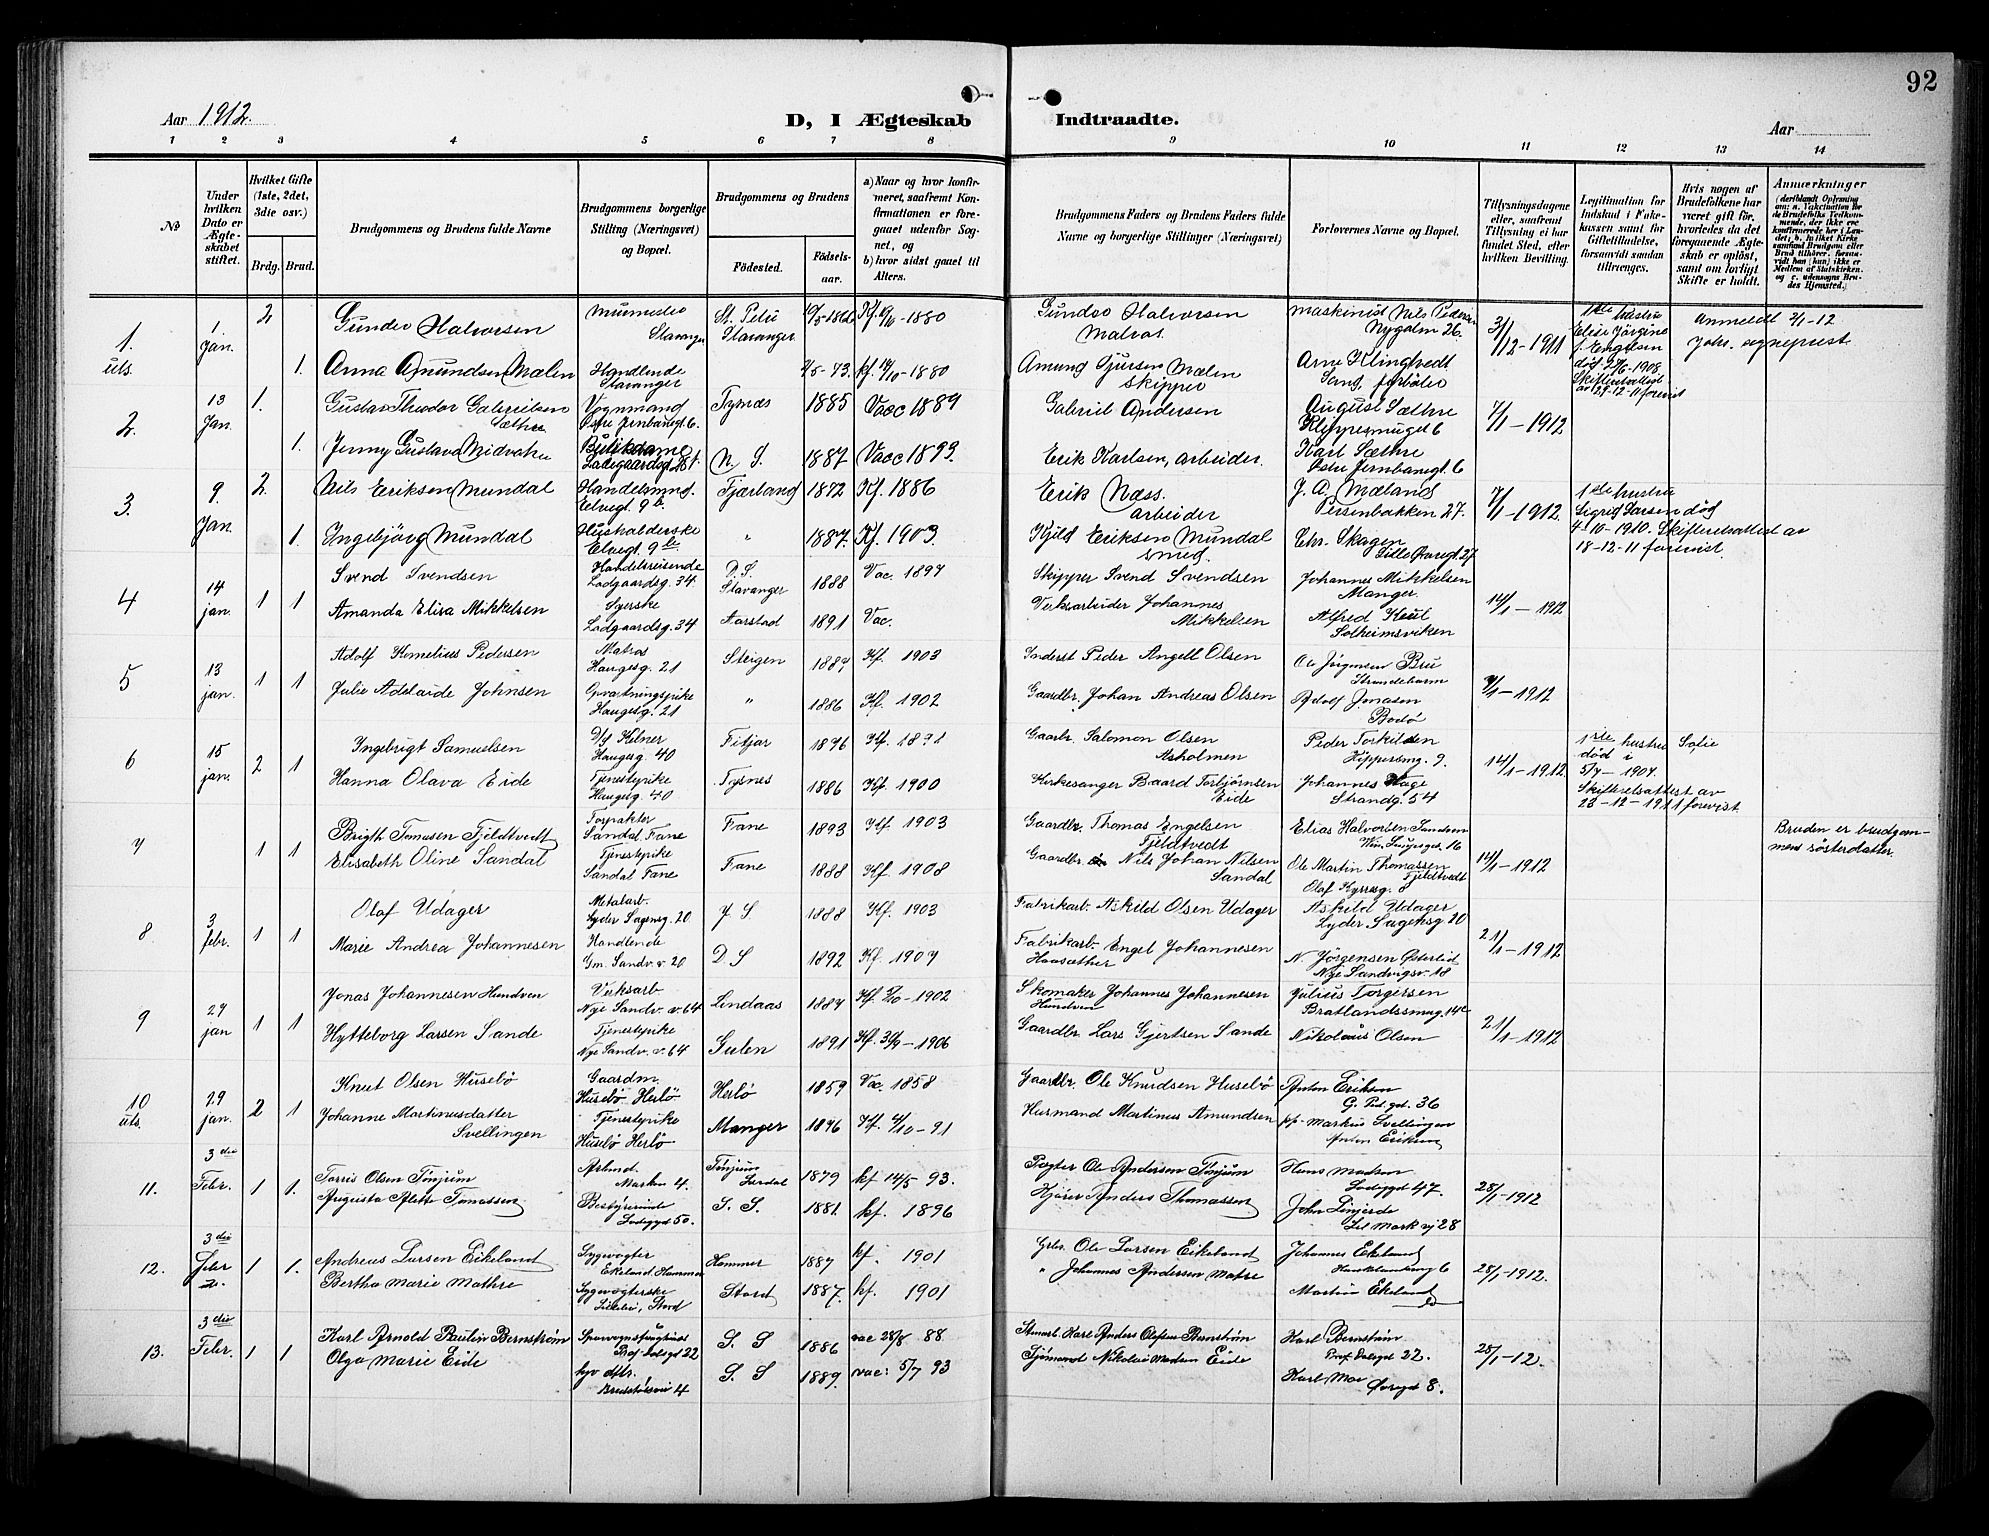 92
Aar 1912.
D, I Ægteskab Indtraadte.
Aar
1 2 3 4 5 6 7 8 9 10 11 12 13 14
№
Under hvilken Dato er Ægteskabet stiftet.
Hvilket Gifte (1ste, 2det, 3die osv.)
Brdg. Brud.
Brudgommens og Brudens fulde Navne
Brudgommens borgerlige Stilling (Næringsvei) og Bopæl.
Brudgommens og Brudens
Fødested. Fødselsaar.
a) Naar og hvor konfirmeret, saafremt Konfirmationen er foregaaet udenfor Sognet, og
b) hvor sidst gaaet til Alters.
Brudgommens Faders og Brudens Faders fulde Navne og borgerlige Stillinger (Næringsvei)
Forlovernes Navne og Bopæl.
Tillysningsdagene eller, saafremt Tillysning ei har fundet Sted, efter hvilken Bevilling.
Legitimation for Indskud i Enkekassen samt for Giftetilladelse, forsaavidt saadan tiltrænges.
Hvis nogen af Brudefolkene har været gift før, hvorledes da det foregaaende Ægteskab er opløst, samt om lovligt Skifte er holdt.
Anmærkninger
1. uts. 1. Jan. 2. Gunder Halvorsen Murmester Stavanger St. Petri Stavanger Kf. 1880 Gunder Halvorsen Matros Maskinist Nils Pedersen Nygaten 26. 31/12-1911 1ste hustru Elise Jörgine f. Engelsen död 1908. Anmeldt 2/1-12
1. Anna Amundsen Mælen Handlende Stavanger kf. 1880 Amund Gjursen Mælen Skipper Arne Klingtvedt
2. 13 Jan. 1. Gustav Theodor Gabrielsen Sæthre Vognmand Østre Jernbanegt. 6. Tysnæs 1885 Vacc 1889 Gabriel Andersen August Sæthre Klippesmuget 6 7/1-1912
1. Jenny Gustava Midvaher Butikdame Ladegaardsgt. N. S. 1887 Vacc 1893. Erik Karlsen, arbeider. Karl Sæthre Østre Jernbanegt. 6
3. 9. Jan. 2. Nils Eriksen Mundal Handelsmd. Elvegt. 9 b. Fjærland 1872 Kf. 1886 Erik Næss. arbeider J. A. Mæland Persenbakken 27. 7/1-1912. 1ste hustru Sigrid Larsen død 4-10-1910. Skifteretsattest av 18-12-11 forevist
1. Ingebjörg Mundal Husholderske Elvegt. 9 b " 1887. Kf. 1903. Kjild Eriksen Mundal smed. Chr. Skagen Lille Øvregt. 27
4 14 jan. 1 1 Svend Svendsen Handelsreisende Ladgaardsg. 34 D.S. Stavanger 1888 Vac. 1897 Skipper Svend Svendsen Johannes Mikkelsen Manger. 14/1-1912
Amanda Elisa Mikkelsen Syerske Ladgaardsg. 34 Aarstad 1891 Vac. Verksarbeider Johannes Mikkelsen Alfred Keul Solheimsviken
5 13 jan. 1 1 Adolf Kornelius Pedersen Matros Haugesg. 21 Steigen 1884 Kf. 1903 Inderst Peder Angell Olsen Ole Jörgensen Bru Strandebarm 7/1-1912
Julie Adelaide Johnsen Opvartningspike Haugesg. 21 " 1886 Kf. 1902 Gaardbr. Johan Andreas Olsen Rydolf Jonasen Bodö
6 15 jan. 2 1 Ingebrigt Samuelsen Kelner Haugesg. 40 Fitjar 1876 Kf. 1891 Gaarbr. Salomon Olsen Asholmen Peder Torkildsen 14/1-1912 1ste hustru Sofie död i 5/7-1907. Skifteretsattest av 23-12-1911 forevist
Hanna Olava Eide Tjenestepike Haugesg. 40 Tysnes 1886 Kf. 1900 Kirkesanger Baard Torbjörnsen Eide Johannes Hage Strandg. 54
7 1 1 Brigth Tomasen Fjeldtvedt Forpakter Sandal Fane Fane 1893 Kf. 1903 Gaardbr. Thomas Engelsen Fjeldtvedt Elias Halvorsen Sandven 14/1-1912 Bruden er brudgommens søsterdatter.
Elisabeth Oline Sandal Tjenestepike Sandal Fane Fane 1888 Kf. 1908 Gaardbr. Nils Johan Nilsen Sandal Ole Martin Thomassen Fjeldtvedt Olaf Kyrresg. 8
8 3 febr. 1 1 Olaf Udager Metalarb. Lyder Sagensg. 20 J. S. 1888 Kf. 1903 Fabrikarb. Askild Olsen Udager Askild Udager Lyder Sagensg. 20 21/1-1912
Marie Andrea Johannesen Handlende Gm. Sandv. v. 20 D S 1892 Kf. 1907 Fabrikarb. Engel Johannesen Haasæther N. Jörgensen Østerlid Nye Sandvigsv. 18
9 27 jan 1 1 Jonas Johannesen Hundven Verksarb Nye Sandv. v. 64 Lindaas 1884 Kf. 1902 Skomaker Johannes Johannesen Hundven Julius Torgersen Bratlandssmug. 14c 21/1-1912
Hytteborg Larsen Sande Tjenestepike Nye Sandv. v. 64 Gulen 1891 Kf. 30/9-1906 Gaardbr. Lars Gjertsen Sande Nikolaus Olsen
10 uts. 29 jan. 2 1 Knut Olsen Husebö Gaardm. Husebö Herlö Herlö 1859 Vac. 1858 Gaardbr. Ole Knudsen Husebö Anton Eriksen G. Pst. gt. 36
Johanne Martinusdatter Svellingen Tjenestepike Husebö Herlö Manger 1876 Kf. 4/10-91 Husmand Martinus Amundsen pp. Markus Svellingen Anton Eriksen
11. 3die Febr. 1 1. Torris Olsen Tønjum Arbmd. Marken 4. Tønjum Lerdal 1879 kf 14/5 93. Pagter Ole Andersen Tønjum Hans Madsen Ladegt 47. 28/1-1912
Augusta Alette Tomassen Bestyrerinde Ladeggt 50. S. S. 1881. kf. 1896 Kjører Anders Thomassen John Linjerde Lil Markvj 28
12. 3die Febr 1 1. Andreas Larsen Eikeland Sygevogter Ekeland, Hammer Hammer 1887 kf. 1901 Grbr. Ole Larsen Eikeland Johannes Ekeland 28/1-1912.
Bertha Marie Mathre Sygevogterske Stord 1887. kf. 1901 " Johannes Andersen Matre Martin Ekeland do
13. 3die Febr. 1 1 Karl Arnold Paulin Bernstrøm Prof. Dalsgt 22 S. S 1886 vac 28/8 88 Stenarb. Karl Anders Olafsen Bernstrøm Karl Bernstrøm Prof. Dalsgt 22. 28/1-12.
Olga Marie Eide hjv dttr. 4 S. S 1889. vac: 5/7 93 Sjömand Nikolai Madsen Eide Karl Moe Øvregt 8.